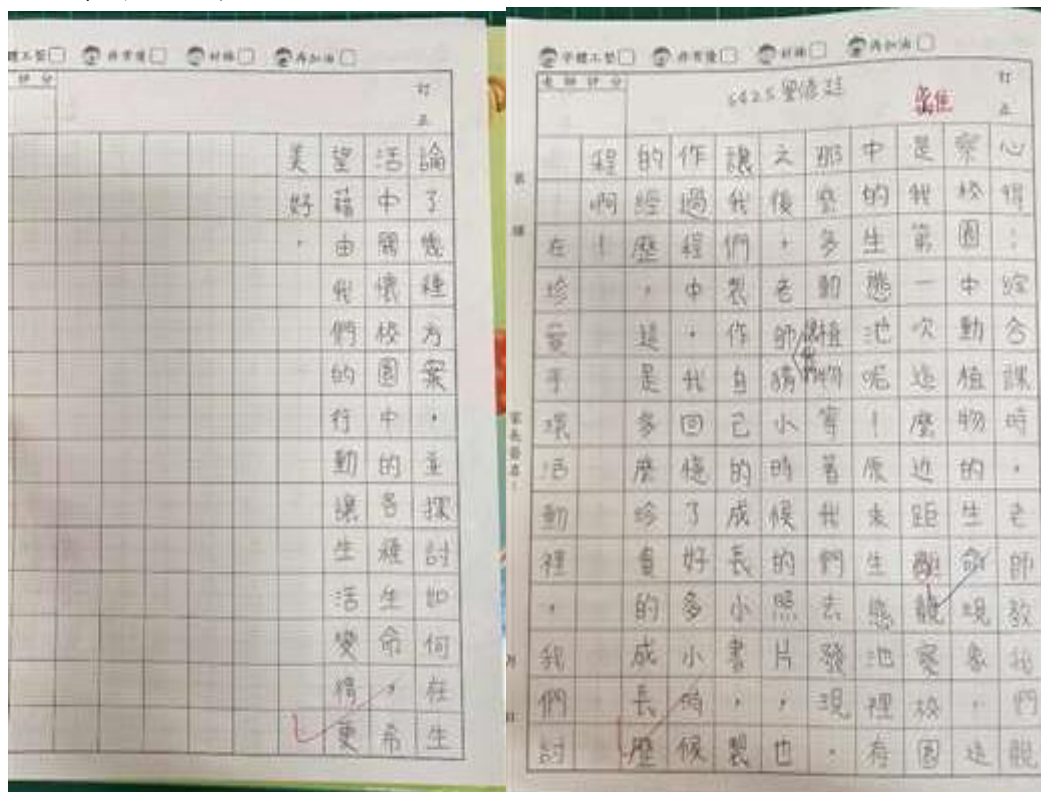 字體工整 非常優 好棒 再加油
老師評分
訂正
心得：綜合課時，老師教我們觀
察校園中動植物的生命現象，這
是我第一次這麼近距離觀察校園
中的生態池呢！原來生態池裡有
那麼多動植物等著我們去發現。
之後，老師請小時候的照片，也
讓我們製作自己的成長小書，製
作過程中，我回憶了好多小時候
的經歷，這是多麼珍貴的成長歷
程啊！
在珍愛手環活動裡，我們討
體工整 非常優 好棒 再加油
評分
訂正
論了幾種方案，並探討如何在生
活中關懷校園中的各種生命，希
望藉由我們的行動讓生活變得更
美好。